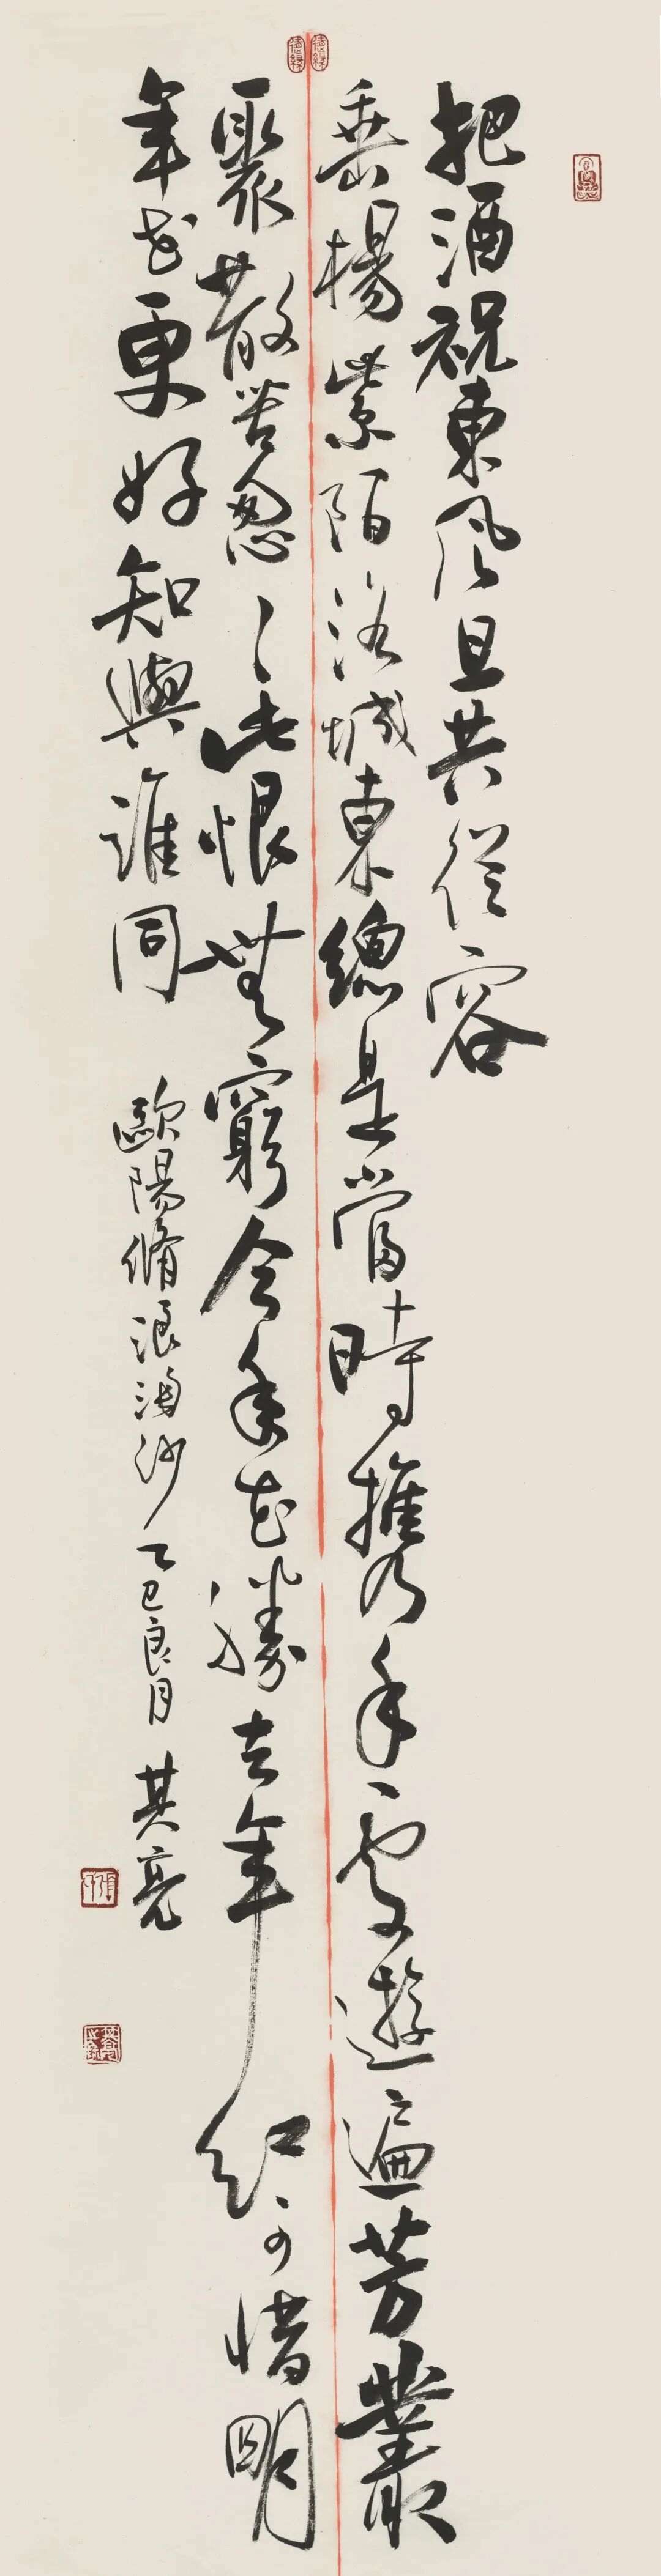 把酒祝東風且共從容
垂楊紫陌洛城東總是當時攜手處遊遍芳叢
聚散苦怱〻此恨無窮今年花勝去年紅可惜明
年花更好知與誰同
歐陽脩浪淘沙乙巳良月其亮